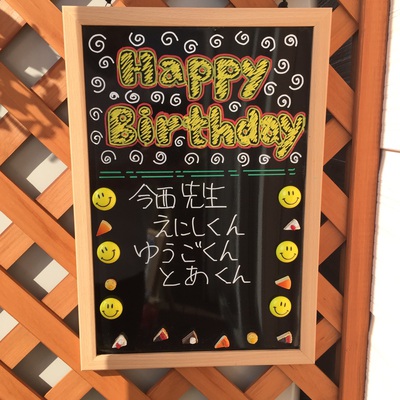 Happy
Birthday
今西先生
えにしくん
ゆうごくん
とあくん